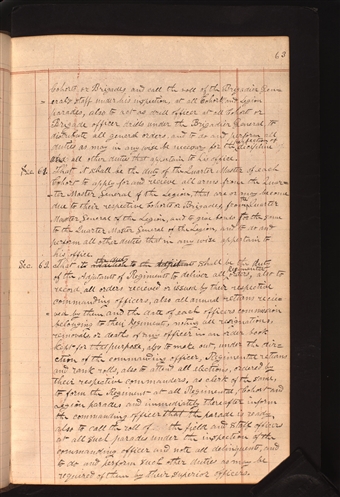 63
Cohorts, or Brigades, and call the roll of the Brigadier Gen-
= erals Staff under his inspection, at all Cohort and Legion
parades, also to act as drill officer at all Cohort or
Brigade officer drills under the Brigadier General, to
distribute all general orders, and to do and perform all
duties as may in any wise be necessary for the inspection & discipline of
and all other duties that appertain to his office.
Sec. 61. That it shall be the duty of the Quarter Master of each
Cohort to apply for and receive all arms from the Quar-
ter Master General of the Legion, that are or may become
due to their respective Cohorts or Brigades, from the Quarter
Master General of the Legion, and to give bonds for the same
to the Quarter Master General of the Legion, and to do and
perform all other duties that in any wise appertain to
his office.
Sec. 62. That it shall be the duty
of the Adjutant of Regiment to deliver all Regimental orders, also to
record all orders received or issued by their respective
commanding officers, also all annual returns recei-
= ved by them and the date of each officers commission
belonging to their Regiment, noting all resignations,
removals or death of any officer in an order book
kept for that purpose, also to make out, under the dire-
ction of the commanding officer, Regimental returns
and rank rolls, also to attend all elections, ordered by
their respective commanders, as clerk of the same,
to form the Regiment at all Regimental, Cohort and
Legion parades and immediately thereafter inform
the commanding officer that the parade is ready,
also to call the roll of the field and Staff officers
at all such parades under the inspection of the
commanding officer and note all delinquents, and
to do and perform such other duties as may be
required of them by their superior officers.